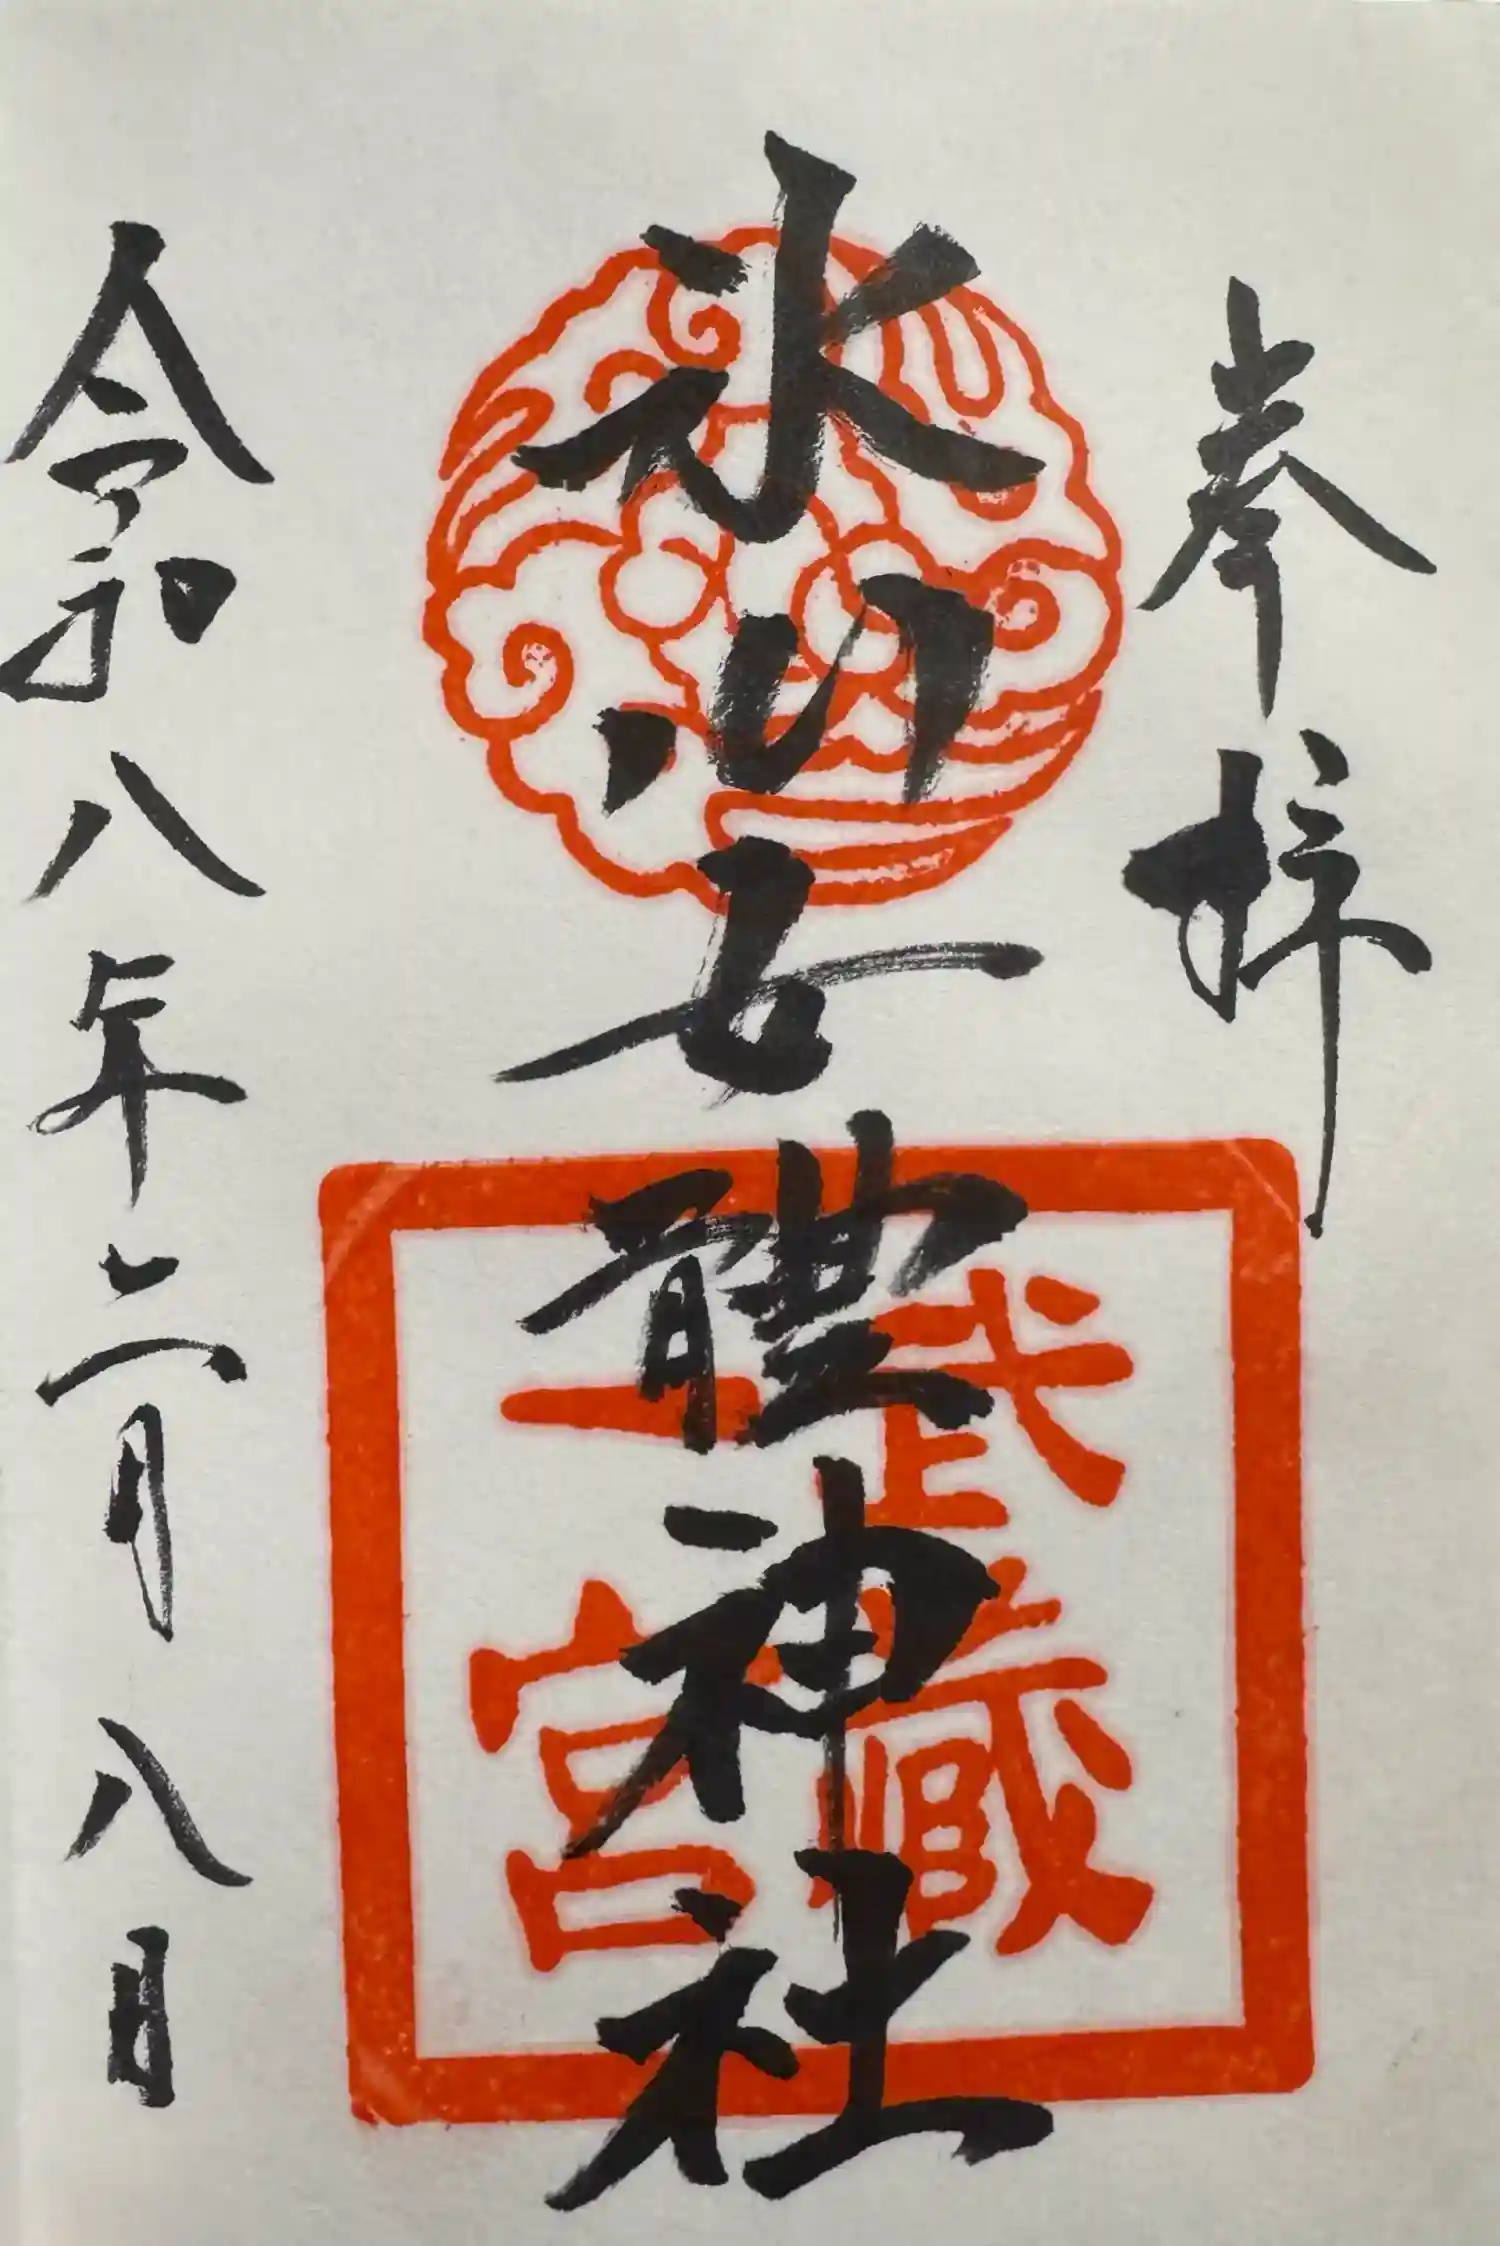 奉拝
氷川女體神社
武藏
一宮
令和八年二月八日